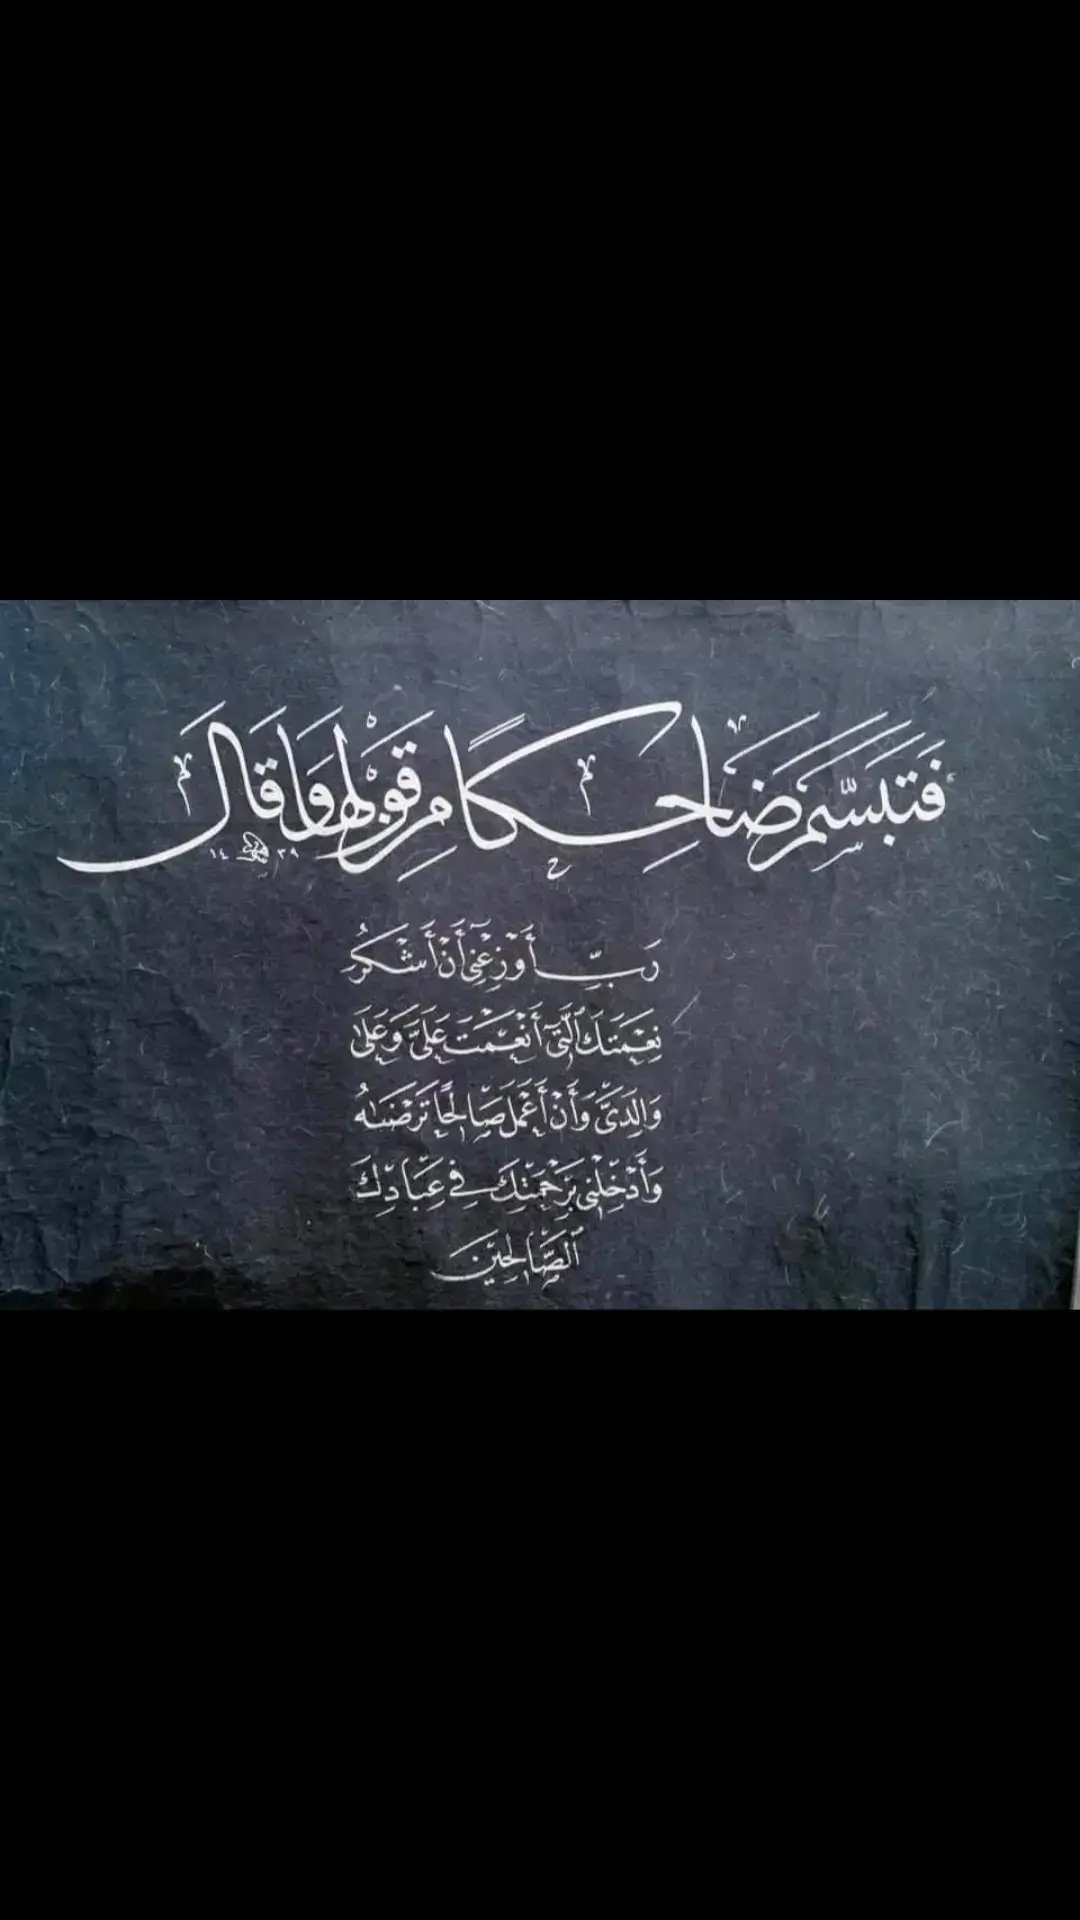 فَتَبَسَّمَ ضَاحِكًا مِنْ قَوْلِهَا وَقَالَ
١٤ ٣٩
رَبِّ أَوْزِعْنِي أَنْ أَشْكُرَ
نِعْمَتَكَ الَّتِي أَنْعَمْتَ عَلَيَّ وَعَلَى
وَالِدَيَّ وَأَنْ أَعْمَلَ صَالِحًا تَرْضَاهُ
وَأَدْخِلْنِي بِرَحْمَتِكَ فِي عِبَادِكَ
الصَّالِحِينَ